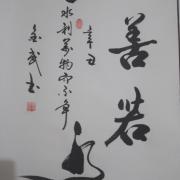 善若水
辛丑
水利萬物而不争
武书